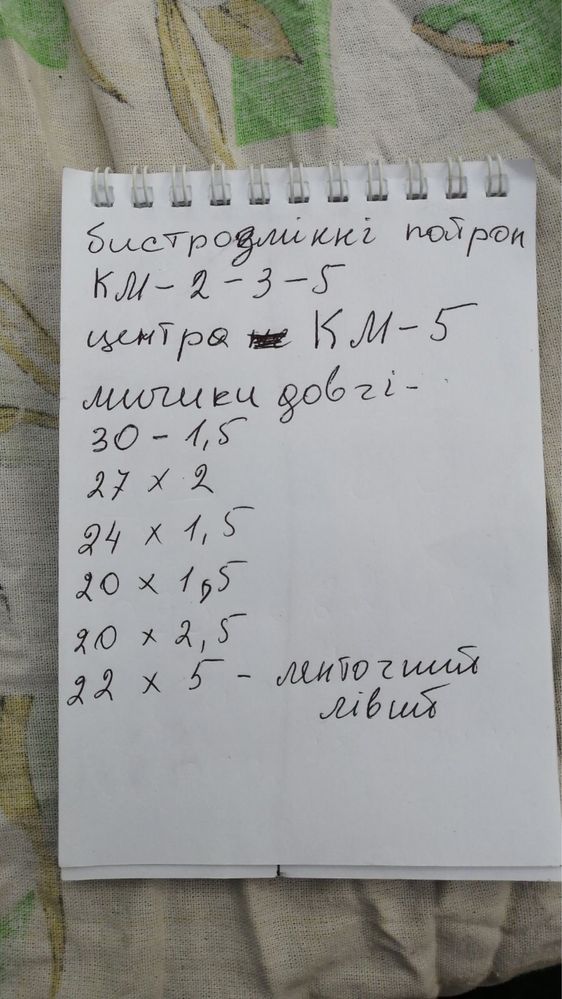 бистрозмінні патрон
КМ-2-3-5
центра КМ-5
мичики довгі -
30 - 1,5
27 х 2
24 х 1,5
20 х 1,5
20 х 2,5
22 х 5 - ленточний
лівий